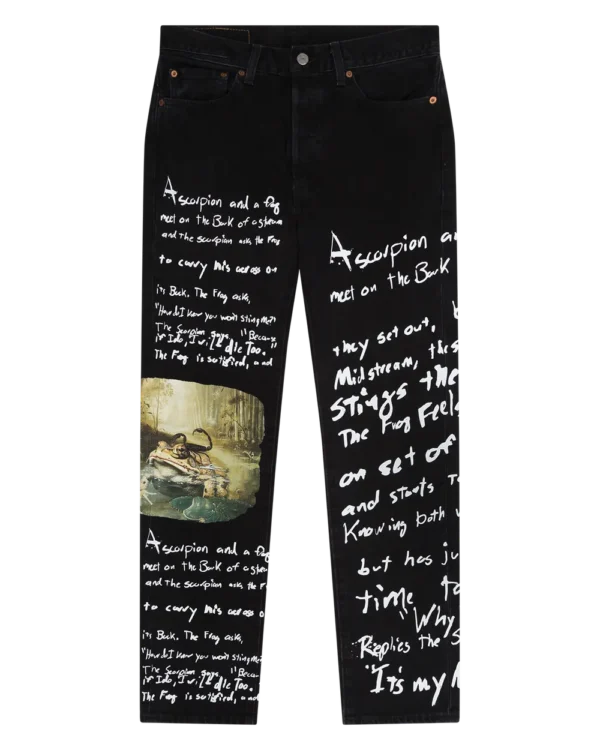 A scorpion and a Frog
meet on the Bank of a stream
and The scorpion asks the Frog
to carry him across on
its Back. The Frog asks,
"How do I know you won't sting Me?"
The Scorpion says, "Because
if I do, I will die Too."
The Frog is satisfied, and
A scorpion and a Frog
meet on the Bank of a strea
and The scorpion asks the F
to carry him across o
its Back. The Frog asks,
"How do I know you won't sting M
The Scorpion says, "Becau
if I do, I will die Too.
The Frog is satisfied, and
A scorpion an
meet on the Bank
they set out, b
Midstream, the s
Stings the
The Frog Feels
on set of
and starts T
Knowing both w
but has ju
time to
"Why
Replies the S
"It's my N